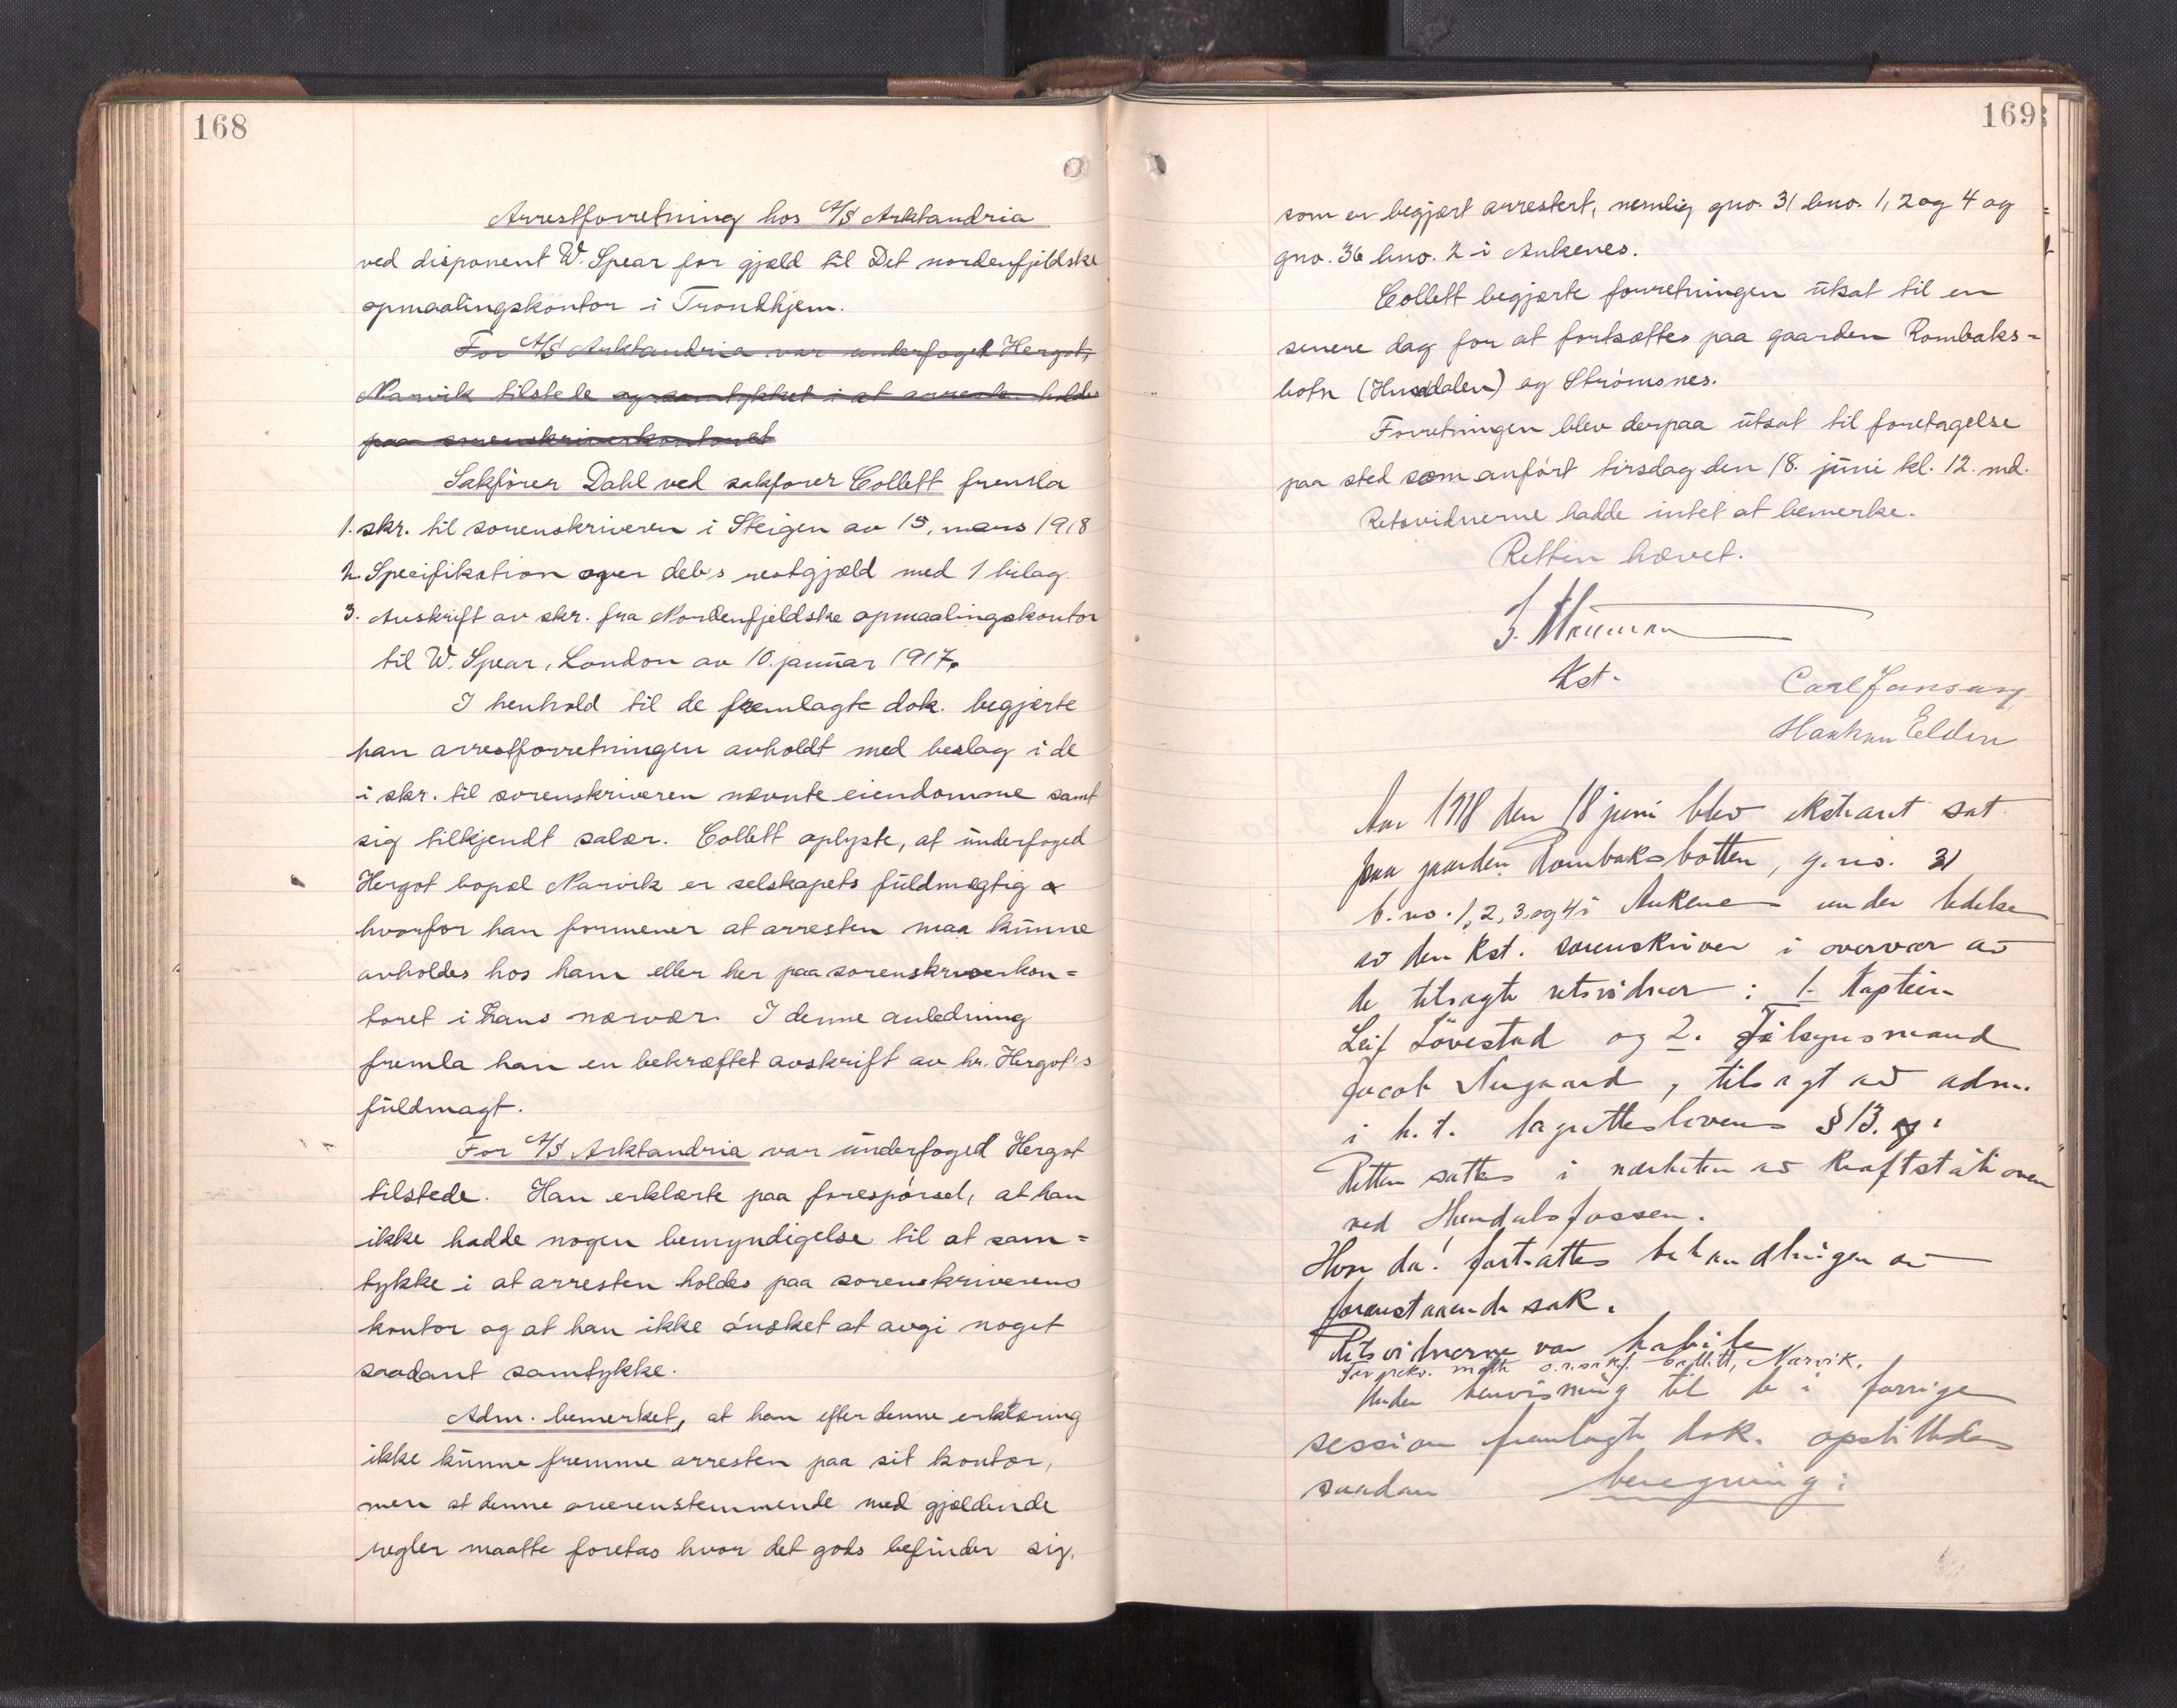 168
Arrestforretning hos A/S Arktandria
ved disponent W. Spear for gjæld til Det nordenfjeldske
opmaalingskontor i Trondhjem.
For A/S Arktandria var underfoged Hergot,
Narvik tilstede og samtykket i at arresten holdes
paa sorenskriverkontoret
Sakfører Dahl ved sakfører Collett fremla
1. skr. til sorenskriveren i Steigen av 15. mars 1918
2. Specifikation over deb's restgjæld med 1 bilag.
3. Avskrift av skr. fra Nordenfjeldske opmaalingskontor
til W. Spear, London av 10. januar 1917.
I henhold til de fremlagte dok. begjærte
han arrestforretningen avholdt med beslag i de
i skr. til sorenskriveren nævnte eiendomme samt
sig tilkjendt salær. Collett oplyste, at underfoged
Hergot bopæl Narvik er selskapets fuldmægtig
hvorfor han formener at arresten maa kunne
avholdes hos ham eller her paa sorenskriverkon=
toret i hans nærvær. I denne anledning
fremla han en bekræftet avskrift av hr. Hergot's
fuldmagt.
For A/S Arktandria var underfoged Hergot
tilstede. Han erklærte paa forespørsel, at han
ikke hadde nogen bemyndigelse til at sam=
tykke i at arresten holdes paa sorenskriverens
kontor og at han ikke ønsket at avgi noget
saadant samtykke.
Adm. bemerket, at han efter denne erklæring
ikke kunne fremme arresten paa sit kontor,
men at denne overenstemmende med gjældende
regler maatte foretas hvor det gods befinder sig,
169
som er begjært arrestert, nemlig gno. 31 bno. 1, 2 og 4 og
gno. 36 bno. 2 i Ankenes.
Collett begjærte forretningen utsat til en
senere dag for at fortsættes paa gaarden Rombaks=
botn (Hundalen) og Strømsnes.
Forretningen blev derpaa utsat til foretagelse
paa sted som anført tirsdag den 18. juni kl. 12. md.
Retsvidnerne hadde intet at bemerke.
Retten hævet.
Kst.
Carl Jensen
Haakon Elden
Aar 1918 den 18 juni blev ekstraret sat
paa gaarden Rombaksbotten, g.no. 31
b.no. 1, 2, 3 og 4 i Ankenes under ledelse
av den kst. sorenskriver i overvær av
de tilsagte retsvidner: 1. Kaptein
Leif Løvestad og 2. Tilsynsmand
Jacob Nygaard, tilsagt av adm.
i h. t. lagretteslovens § 13.
Retten sattes i nærheten av kraftstationen
ved Hundalsfossen.
Hvor da! fortsattes behandlingen av
forenstaaende sak.
Retsvidnerne var habile
For rekv. møtte o.r.sakf. Collett, Narvik.
Under henvisning til de i forrige
session fremlagte dok. opstilledes
saadan beregning: